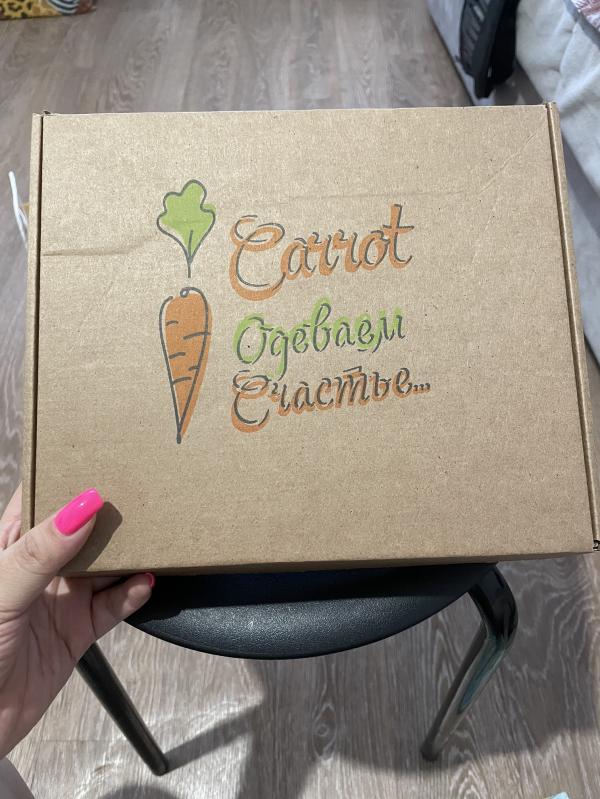 Carrot
Одеваем
Счастье...